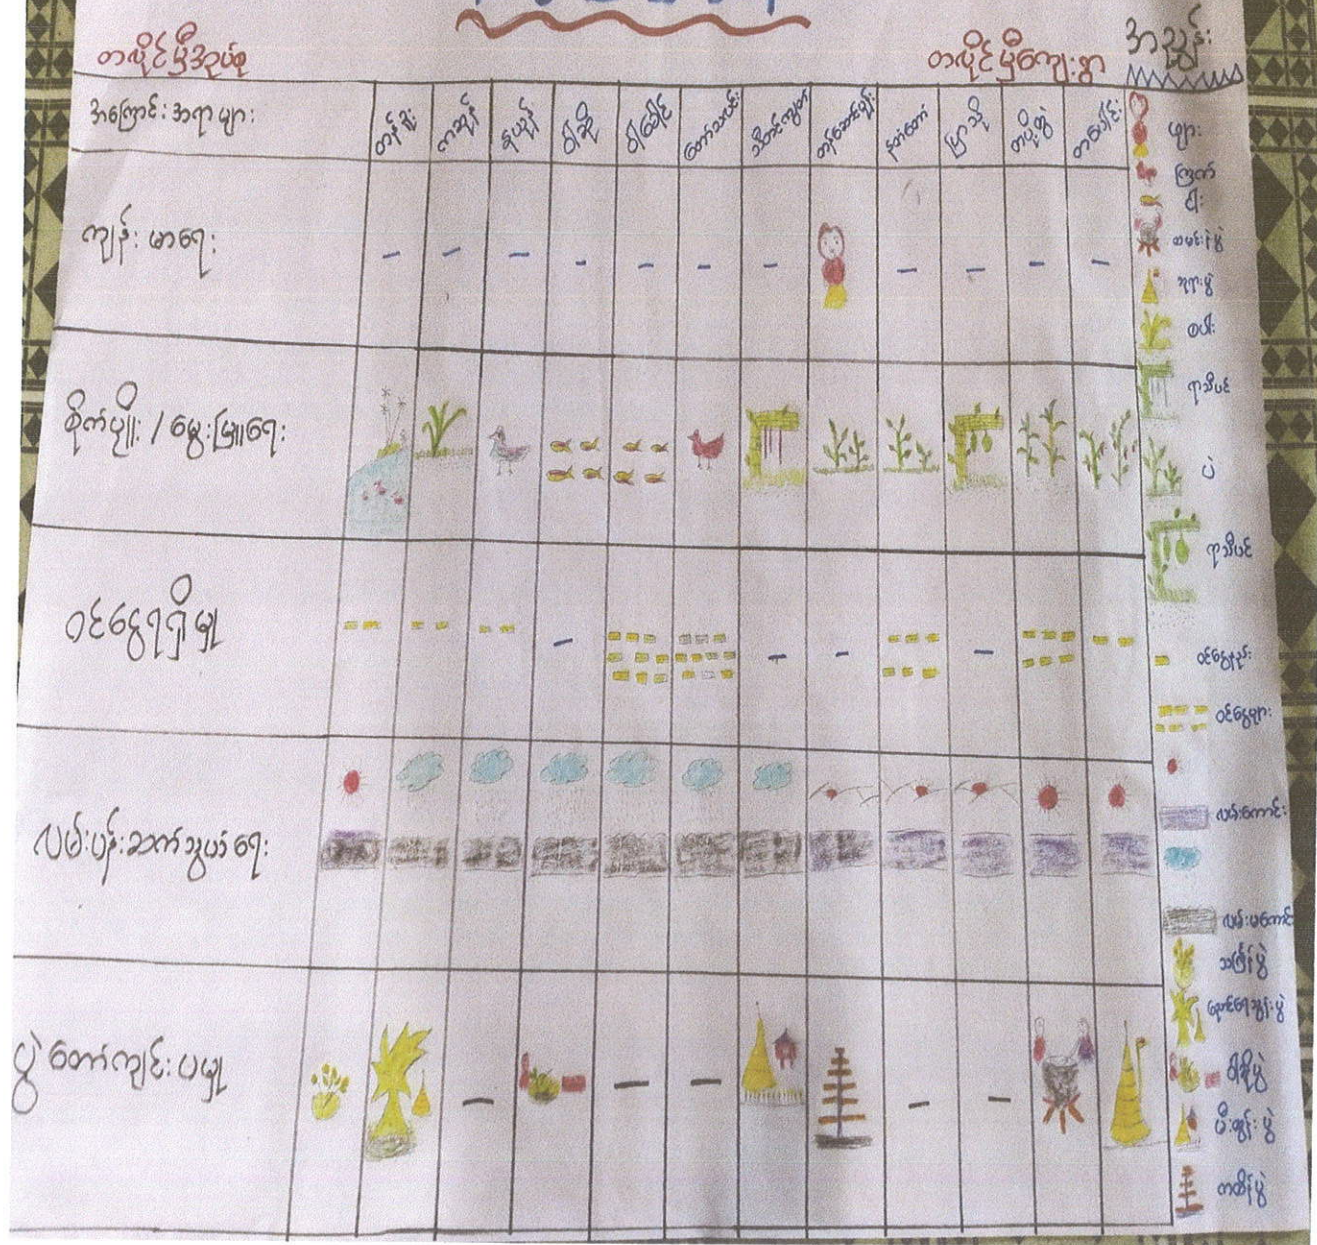 တလိုင်မှီအုပ်စု
တလိုင်မှီကျေးရွာ
အညွှန်း
အကြောင်းအရာများ
တန်ခူး
ကဆုန်
နယုန်
ဝါဆို
ဝါခေါင်
တော်သလင်း
သီတင်းကျွတ်
တန်ဆောင်မုန်း
နတ်တော်
ပြာသို
တပို့တွဲ
တပေါင်း
ကျန်းမာရေး
စိုက်ပျိုး / မွေးမြူရေး
ဝင်ငွေရရှိမှု
လမ်းပန်းဆက်သွယ်ရေး
ပွဲတော်ကျင်းပမှု
ဖျား
ကြက်
ငါး
ထမင်းနဲပွဲ
ဘုရားပွဲ
စပါး
ရာသီပင်
ပဲ
ရာသီပင်
ဝင်ငွေနည်း
ဝင်ငွေများ
လမ်းကောင်း
လမ်းမကောင်း
သင်္ကြန်ပွဲ
ညောင်ရေသွန်းပွဲ
ဝါဆိုပွဲ
မီးထွန်းပွဲ
ကထိန်ပွဲ